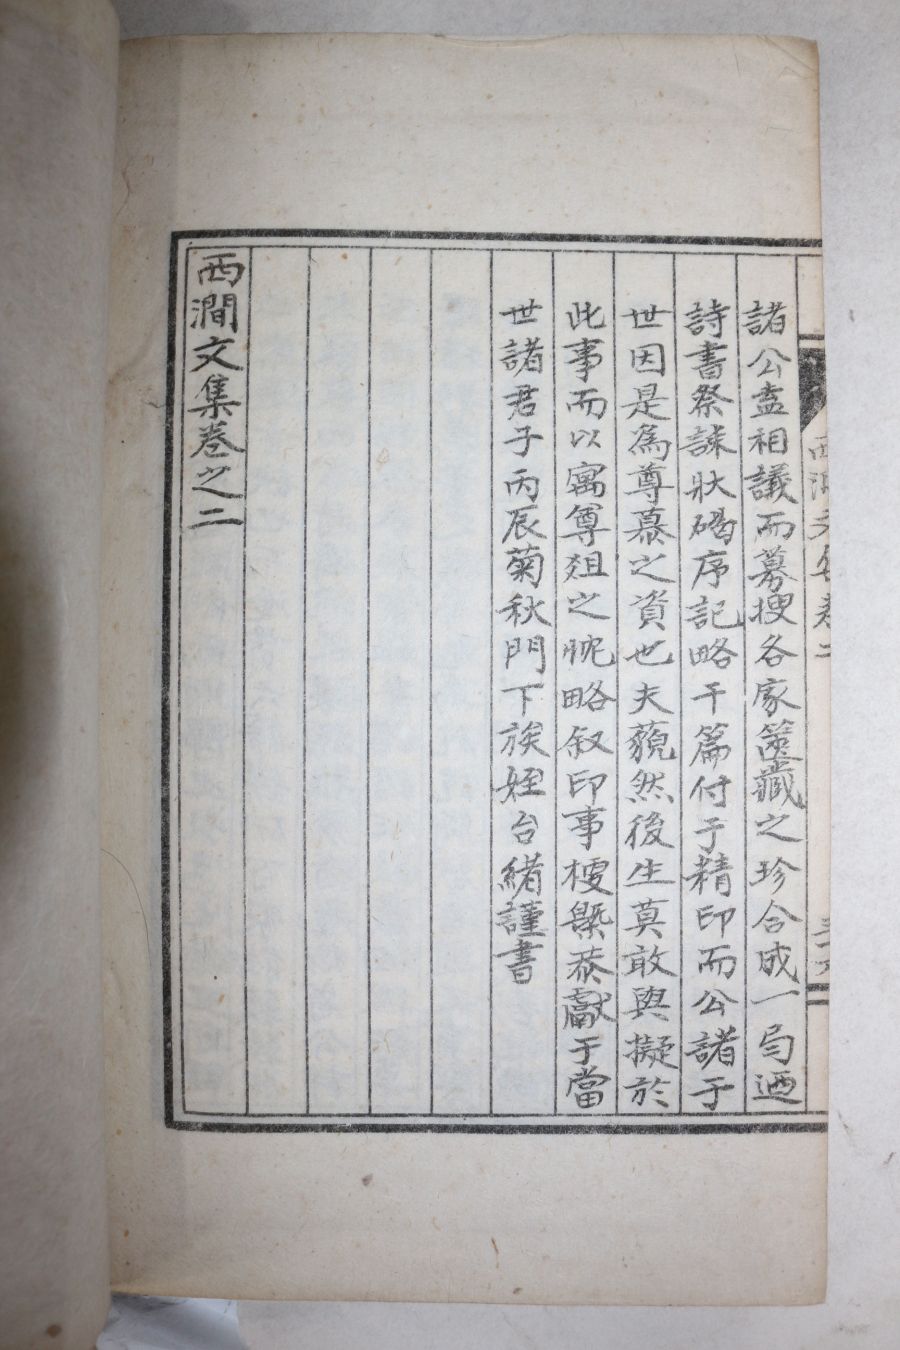 西澗文集卷二
諸公盍相議而募搜各家篋藏之珍合成一局迺
詩書祭誄狀碣序記略干篇付于精印而公諸于
世因是為尊慕之資也夫藐然後生莫敢與擬於
此事而以寓尊俎之忱略叙印事梗槩恭獻于當
世諸君子丙辰菊秋門下族姪台緖謹書
西澗文集卷之二